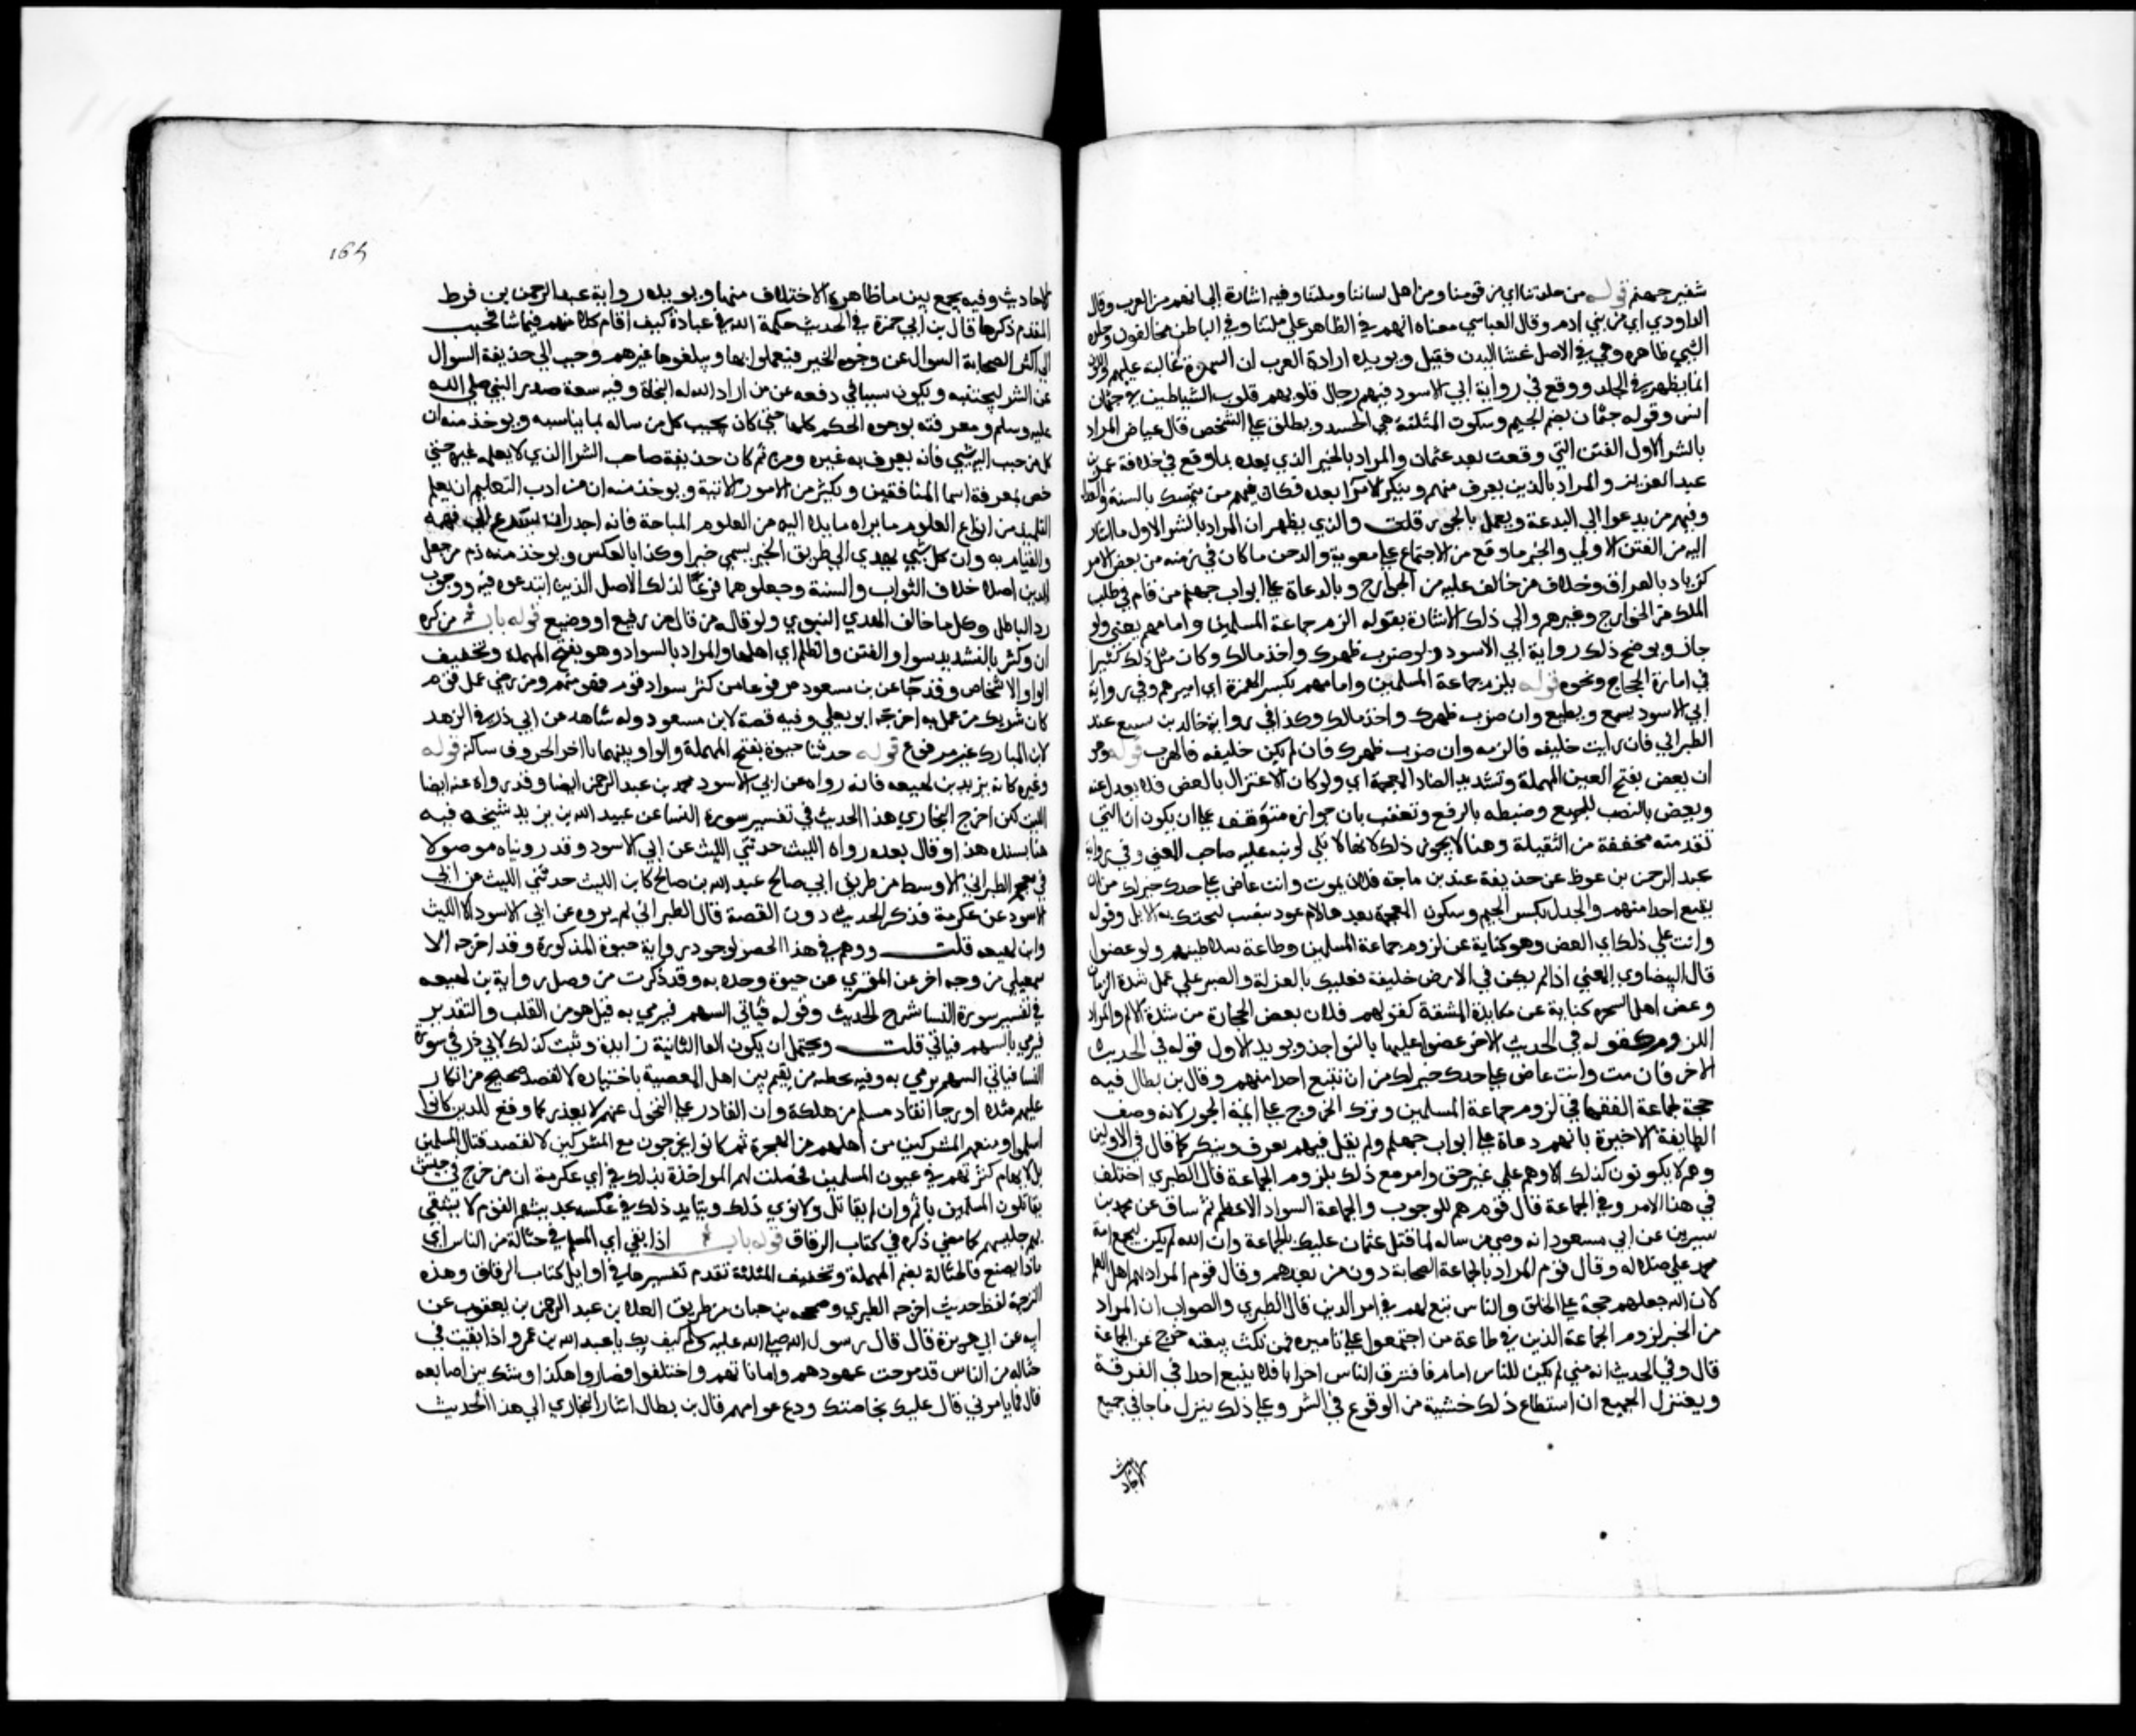 شفير جهنم قوله من جلدتنا اي من قومنا ومن اهل لساننا وملتنا وفيه اشارة الي انهم من العرب وقال
الداودي اي من بني ادم وقال القابسي معناه انهم في الظاهر علي ملتنا وفي الباطن مخالفون وجلدة
الشي ظاهره وهي في الاصل غشا البدن فقيل ويويد ارادة العرب ان السمرة غالبة عليهم واللون
انما يظهر في الجلد ووقع في رواية ابي الاسود فيهم رجال قلوبهم قلوب الشياطين في جثمان
انس وقوله جثمان بضم الجيم وسكون المثلثة هو الجسد ويطلق علي الشخص قال عياض المراد
بالشر الاول الفتن التي وقعت بعد عثمان والمراد بالخير الذي بعده ما وقع في خلافة عمر بن
عبد العزيز والمراد بالذين يعرف منهم وينكر الامرا بعده فكان فيهم من يتمسك بالسنة والعدل
وفيهم من يدعوا الي البدعة ويعمل بالجور قلت والذي يظهر ان المراد بالشر الاول ما اشار
اليه من الفتن الاولي والخير ما وقع من الاجتماع علي معوية والدخن ما كان في زمنه من بعض الامر
كزياد بالعراق وخلاف من خالف عليه من الخوارج وبالدعاة علي ابواب جهنم من قام في طلب
الملك من الخوارج وغيرهم والي ذلك الاشارة بقوله الزم جماعة المسلمين وامامهم يعني ولو
جار ويوضح ذلك رواية ابي الاسود ولو ضرب ظهرك واخذ مالك وكان مثل ذلك كثيرا
في امارة الحجاج ونحوه قوله يلزم جماعة المسلمين وامامهم بكسر الهمزة اي اميرهم وفي رواية
ابي الاسود يسمع ويطيع وان ضرب ظهرك واخذ مالك وكذا في رواية خالد بن سبيع عند
الطبراني فان رايت خليفه فالزمه وان ضرب ظهرك فان لم يكن خليفه فالهرب قوله ولو
ان بعض بفتح العين المهملة وتشديد الضاد المعجمة اي ولو كان الاعتزال بالعض فلا يعدل عنه
وبعض بالنصب للجميع وضبطه بالرفع وتعقب بان جوازه متوقف علي ان يكون ان التي
تقدمته مخففة من الثقيلة وهنا لا يجوز ذلك لانها لا تلي لو نبه عليه صاحب المغني وفي رواية
عبد الرحمن بن عن حذيفة عند بن ماجه فلان يموت وانت عاض علي جدل خير لك من ان
يتبع احدا منهم والجدل بكسر الجيم وسكون المعجمة بعدها لام عود ينصب لتحتك به الابل وقوله
وانت علي ذلك اي العض وهو كناية عن لزوم جماعة المسلمين وطاعة سلاطينهم ولو عصوا
قال البيضاوي المعني اذا لم يكن في الارض خليفة فعليك بالعزلة والصبر علي تحمل شدة الزمان
وعض اصل الشجرة كناية عن مكابدة المشقة كقولهم فلان يعض الحجارة من شدة الالم والمراد
اللزوم كقوله في الحديث الاخر عضوا عليها بالنواجذ ويويد الاول قوله في الحديث
الاخر فان مت وانت عاض علي جدل خير لك من ان تتبع احدا منهم وقال بن بطال فيه
حجة لجماعة الفقها في لزوم جماعة المسلمين وترك الخروج علي ايمة الجور لانه وصف
الطايفة الاخيرة بانهم دعاة علي ابواب جهنم ولم يقل فيهم يعرف وينكر كما قال في الاولين
وهم لا يكونون كذلك الا وهم علي غير حق وامر مع ذلك بلزوم الجماعة قال الطبري اختلف
في هذا الامر وفي الجماعة قال قوم هم للوجوب والجماعة السواد الاعظم ثم ساق عن محمد بن
سيرين عن ابي مسعود انه وصي من ساله لما قتل عثمان عليك بالجماعة وان الله لم يكن ليجمع امة
محمد علي ضلالة وقال قوم المراد بالجماعة الصحابة دون من بعدهم وقال قوم المراد بهم اهل العلم
لان الله جعلهم حجة علي الخلق والناس تبع لهم في امر الدين قال الطبري والصواب ان المراد
من الخبر لزوم الجماعة الذين في طاعة من اجتمعوا علي تاميره فمن نكث بيعته خرج عن الجماعة
قال وفي الحديث انه متي لم يكن للناس امام فافترق الناس احزابا فلا يتبع احدا في الفرقة
ويعتزل الجميع ان استطاع ذلك خشية من الوقوع في الشر وعلي ذلك يتنزل ما جا في جميع
الاحاديث
165
الاحاديث وفيه يجمع بين ما ظاهره الاختلاف منها ويويده رواية عبد الرحمن بن قرط
المقدم ذكرها قال بن ابي جمرة في الحديث حكمة الله في عباده كيف اقام كلا منهم فيما شا فحبب
الي اكثر الصحابة السوال عن وجوه الخير فيعملوا بها ويبلغوها غيرهم وحبب الي حذيفة السوال
عن الشر ليجتنبه ويكون سببا في دفعه عن من اراد الله له النجاة وفيه سعة صدر النبي صلي الله
عليه وسلم ومعرفته بوجوه الحكم كلها حتي كان يجيب كل من ساله بما يناسبه ويوخذ منه ان
كل من حبب اليه شي فانه يعرف به غيره ومن ثم كان حذيفة صاحب السر الذي لا يعلمه غيره حتي
خص بمعرفة اسما المنافقين وبكثير من الامور الاتية ويوخذ منه ان من ادب التعليم ان يعلم
التلميذ من انواع العلوم ما يراه مايلا اليه من العلوم المباحة فانه اجدر ان يسرع الي تفهمه
والقيام به وان كل شي يهدي الي طريق الخير يسمي خيرا وكذا بالعكس ويوخذ منه ذم من جعل
للدين اصلا خلاف الثواب والسنة وجعلوهما فرعا لذلك الاصل الذين ابتدعوه فيه ووجوب
رد الباطل وكل ما خالف الهدي النبوي ولو قاله من قال من رفيع او وضيع قوله باب من كره
ان وكثر بالتشديد سواد الفتن والظلم اي اهلها والمراد بالسواد وهو بفتح المهملة وتخفيف
الواو الاشخاص وقد جا عن بن مسعود مرفوعا من كثر سواد قوم فهو منهم ومن رضي عمل قوم
كان شريك من عمل به اخرجه ابو يعلي وفيه قصة لابن مسعود وله شاهد من ابي ذر في الزهد
لابن المبارك غير مرفوع قوله حدثنا حيوة بفتح المهملة والواو بينهما يا اخر الحروف ساكنة قوله
وغيره كانه يريد بن لهيعه فانه رواه عن ابي الاسود محمد بن عبد الرحمن ايضا وقد رواه عنه ايضا
الليث لكن اخرج البخاري هذا الحديث في تفسير سورة النسا عن عبد الله بن يزيد شيخه فيه
هنا بسنده هذا وقال بعده رواه الليث حدثني الليث عن ابي الاسود وقد رويناه موصولا
في معجم الطبراني الاوسط من طريق ابي صالح عبد الله بن صالح كاتب الليث حدثني الليث عن ابي
الاسود عن عكرمة فذكر الحديث دون القصة قال الطبراني لم يروه عن ابي الاسود الا الليث
وابن لهيعه قلت ووهم في هذا الحصر لوجود رواية حيوة المذكورة وقد اخرجه الا
سمعيلي من وجه اخر عن المقري عن حيوة وحده به وقد ذكرت من وصل رواية بن لهيعه
في تفسير سورة النسا شرح الحديث وقوله فياتي السهم فيرمي به قيل هو من القلب والتقدير
فيرمي بالسهم فياتي قلت ويحتمل ان يكون الفا الثانية زايدة وثبت كذلك لابي ذر في سورة
النسا فياتي السهم يرمي به وفيه تخطية من يقيم بين اهل المعصية باختياره لا لقصد صحيح من انكار
عليهم مثلا او رجا انقاذ مسلم من هلكة وان القادر علي التحول عنهم لا يعذر كما وقع للذين كانوا
اسلموا ومنعهم المشركين من اهلهم من الهجرة ثم كانوا يخرجون مع المشركين لا لقصد قتال المسلمين
بل لايهام كثرتهم في عيون المسلمين فحصلت لهم المواخذة بذلك فراي عكرمة ان من خرج في جيش
يقاتلون المسلمين ياثم وان لم يقاتل ولا نوي ذلك ويتايد ذلك في عكسه بحديث هم القوم لا يشقي
بهم جليسهم كما مضي ذكره في كتاب الرقاق قوله باب اذا بقي اي المسلم في حثالة من الناس اي
ماذا يصنع فالحثالة بضم المهملة وتخفيف المثلثة تقدم تفسيرها في اوايل كتاب الرقاق وهذه
الترجمة لفظ حديث اخرجه الطبري وصححه بن حبان من طريق العلا بن عبد الرحمن بن يعقوب عن
ابيه عن ابي هريرة قال قال رسول الله صلي الله عليه وسلم كيف بك يا عبد الله بن عمرو اذا بقيت في
حثاله من الناس قد مرجت عهودهم واماناتهم واختلفوا فصاروا هكذا وشبك بين اصابعه
قال فما يامرني قال عليك بخاصتك ودع عوامهم قال بن بطال اشار البخاري الي هذا الحديث